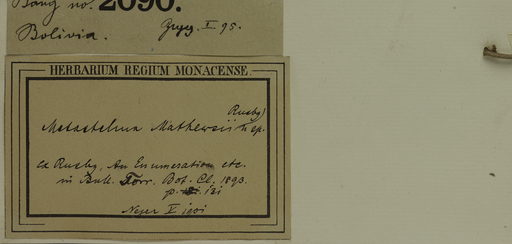 Bang no. 2090.
Bolivia. I. 95.
HERBARIUM REGIUM MONACENSE.
Rusby)
Metastelma Mathewsii n sp.
ex Rusby, An Enumeration etc.
in Bull. Torr. Bot. Cl. 1893.
p. 121
V 1901